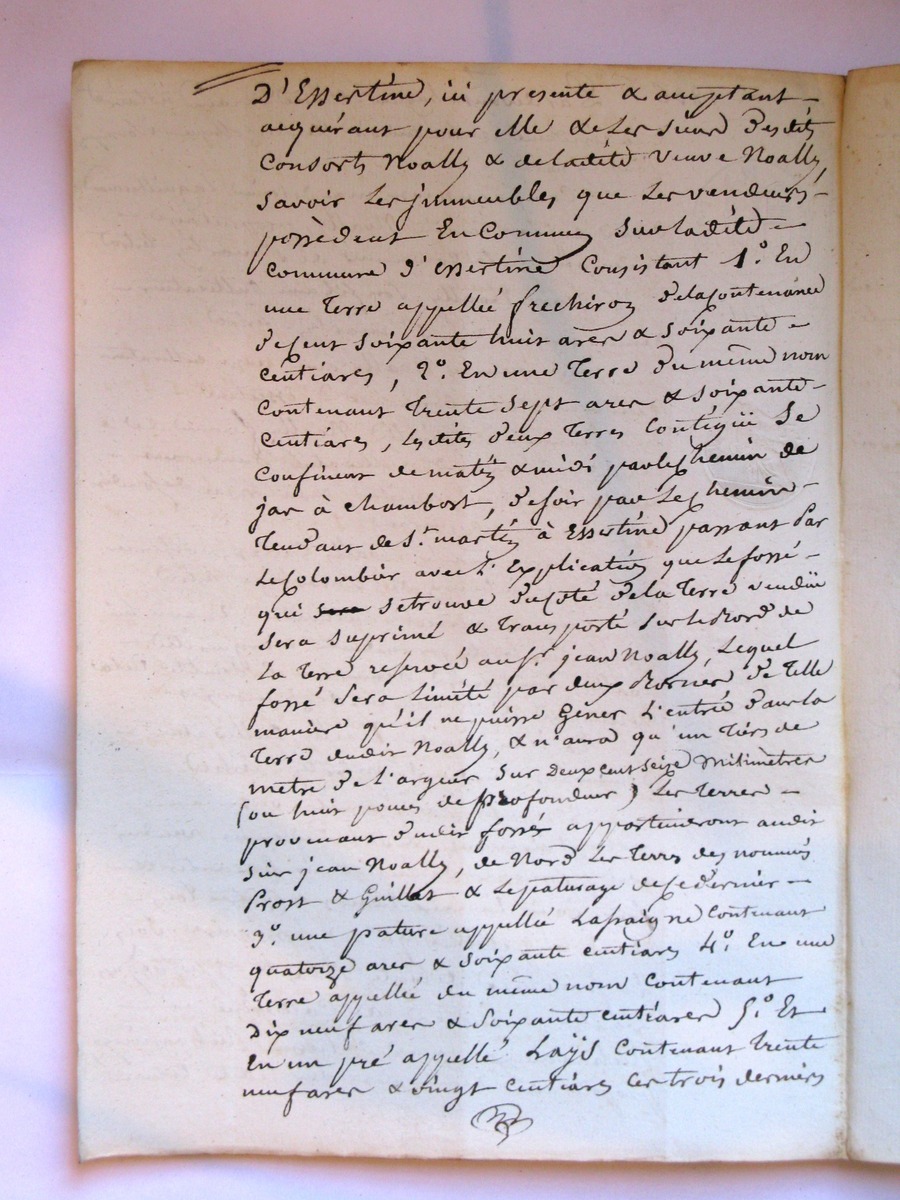 D'Essertine, ici presente & acceptant
acquérant pour elle & les siens desdits
Consorts Noally & de ladite veuve Noally,
savoir Les immeubles que Les vendeurs
possèdent En Commun sur ladite
commune d'essertine Consistant 1.° En
une Terre appellée frechiroz de la Contenance
de Cent soixante huit ares & soixante
centiares, 2.° En une Terre du même nom
contenant trente sept ares & soixante
centiares, lesdites deux Terres Contiguë Se
confinent de matin & midi par le chemin de
jas à chambost, de soir par Le chemin
Tendant de S.t martin à Essertine passant Par
Le Colombier avec L'Explication que Le fossé
qui sera se trouve du côté de la Terre venduë
sera suprimé & transporté sur le Bord de
La Terre reservée au S.r jean Noally, Lequel
fossé sera Limité par deux Bornes de Telle
manière qu'il ne puisse Gêner L'entrée dans la
Terre dudit Noally, & n'aura qu'un tiers de
metre de l'argeur sur deux cent seize milimètres
(ou huit pouces de profondeur) Les Terres
provenant dudit fossé appartiendront audit
sieur jean Noally, de Nord Les Terres des nommés
Prost & Guillot & Le paturage de Ce dernier
3.° une pature appellée Lafsaigne Contenant
quatorze ares & soixante centiares 4.° En une
Terre appellée du même nom Contenant
Dix neuf ares & soixante centiares 5.° Et
En un pré appellé Laÿs Contenant trente
neuf ares & vingt centiares Ces trois derniers